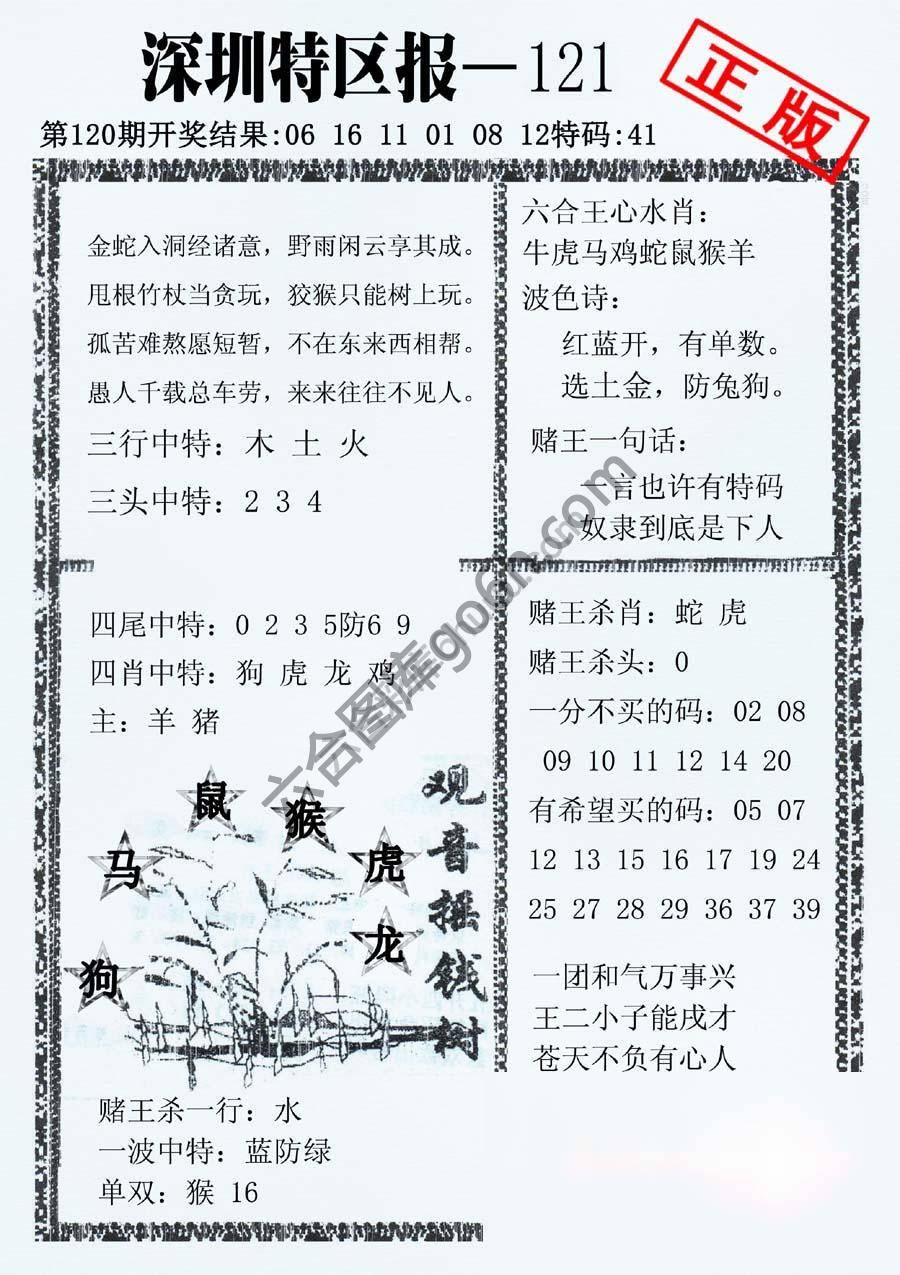 深圳特区报—121
正版
第120期开奖结果:06 16 11 01 08 12特码:41
金蛇入洞经诸意，野雨闲云享其成。
甩根竹杖当贪玩，狡猴只能树上玩。
孤苦难熬愿短暂，不在东来西相帮。
愚人千载总车劳，来来往往不见人。
三行中特：木 土 火
三头中特：2 3 4
六合王心水肖：
牛虎马鸡蛇鼠猴羊
波色诗：
红蓝开，有单数。
选土金，防兔狗。
赌王一句话：
一言也许有特码
奴隶到底是下人
四尾中特：0 2 3 5防6 9
四肖中特：狗 虎 龙 鸡
主：羊 猪
鼠
猴
马
虎
龙
狗
观音摇钱树
赌王杀一行：水
一波中特：蓝防绿
单双：猴 16
赌王杀肖：蛇 虎
赌王杀头：0
一分不买的码：02 08
09 10 11 12 14 20
有希望买的码：05 07
12 13 15 16 17 19 24
25 27 28 29 36 37 39
一团和气万事兴
王二小子能戌才
苍天不负有心人
六合图库go6h.com